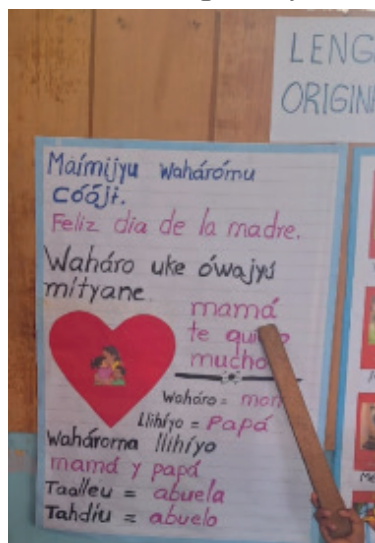 LENG
ORIGIN
Maímijyu waháró́mu
cóójí.
Feliz dia de la madre.
Waháro uke ówajyú
mítyane
mamá
te
mucho
Waháro =
Llihíyo = Papá
Wahárorna llihíyo
mamá y papá
Taalleu = abuela
Tahdíu = abuelo